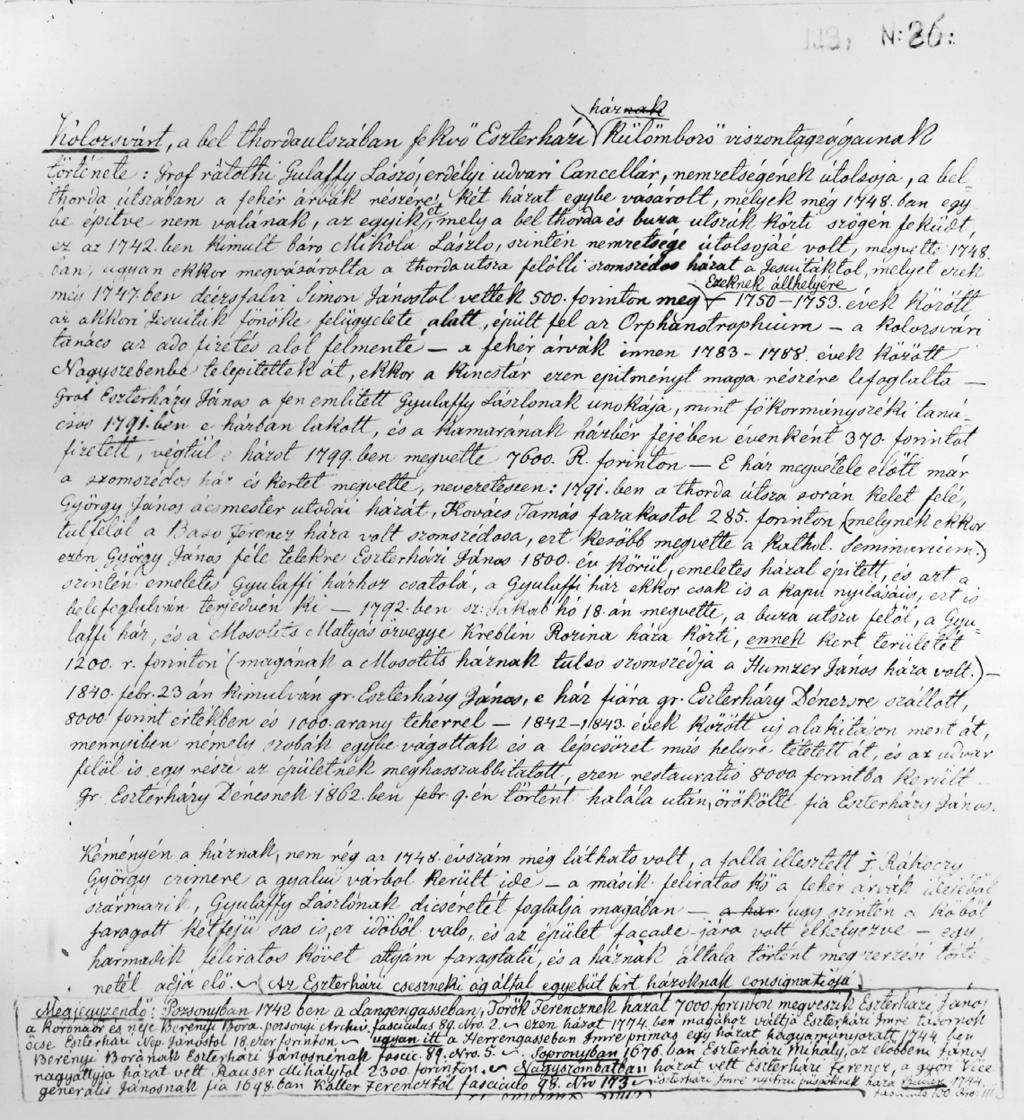 113. N: 26:
ház
Kolozsvárt, a bel thordautszában fekvő Eszterházi külömböző viszontagságainak
története: Gróf rátóthi Gulaffy László, erdélyi udvari Cancellár, nemzetségének útolsoja, a bel-
thorda utszában a fehér árvák részére, két házat egybe vásárolt, melyek még 1748.ban egy-
be építve nem valának, az egyik, mely a bel thorda és buza utszák közti szögén feküdt,
ez az 1742.ben kimult báro Mikola László, szintén nemzetsége útolsojáé volt, megvette 1748.
ban, ugyan ekkor megvásárolta a thordautsza felölli szomszédos házat a Jesuitáktol, melyet ezek
még 1747.ben deézsfalvi Simon Jánostol vettek 500. forinton meg
Ezeknek állhelyére
1750–1753. évek között
az akkori Jesuiták főnöke felügyelete alatt, épült fel az Orphanotrophium – a kolozsvári
tanács az ado fizetés alol felmente – a fehér árvák innen 1783–1788. évek között
Nagyszebenbe telepítettek át, ekkor a kincstár ezen építményt maga részére lefoglalta –
Gróf Eszterházy János a fen említett Gyulaffy Lászlonak unokája, mint főkormányszéki taná-
csos 1791.ben e házban lakott, és a kamaranak házbér fejében évenként 370. forintot
fizetett, végtül e házat 1799.ben megvette 7600. R. forinton – E ház megvétele előtt már
a szomszédos ház és kertet megvette, nevezetessen: 1791.ben a thorda utsza során kelet felé,
György János ácsmester utodai házat, Kovacs Tamás fazakastol 285. forinton (melynek ekkor
tulfelöl a Baso Ferencz háza volt szomszédosa, ezt később megvette a kathol. Seminarium.)
ezen György János féle telekre Eszterházi János 1800. év körül, emeletes házat épített, és azt a
szintén emeletes Gyulaffi házhoz csatola, a Gyulaffi ház ekkor csak is a kapu nyilásáig, ezt is
belefoglulván terjedven ki – 1792.ben sz: Jakab ho 18.án megvette, a buza utsza felöl, a Gyu-
laffi ház, és a Mosotits Mátyás özvegye Kreblin Rozina háza közti, ennek kert területét
1200. r. forinton (magának a Mosotits háznak tulso szomszédja a Humzer János háza volt.)–
1840. febr. 23 án kimulván gr. Eszterházy János, e ház fiára gr. Eszterházy Dénezsre szállott,
8000 forint értékben és 1000. arany teherrel – 1842–1843. évek között uj alakitáson ment át,
mennyiben némely szobák egybe vágottak és a lépcsőzet más helyre tétetett át, és az udvar
felöl is egy része az épületnek meghosszabbitatott, ezen restauratio 8000 forintba került
Gr. Eszterházy Denesnek 1862.ben febr. 9.én történt halála után, örökölte fia Eszterházy János.
Kéményén a háznak, nem rég az 1748. évszám még látható volt, a falla illesztett I. Rákoczy
György czimere a gyalui várbol került ide – a másik feliratos kő a feher árvák idejéből
származik, Gyulaffy Lászlónak dicséretét foglalja magában – a ház ugy szintén a kőből
faragott kétfejü sas is, ez időből való, és az épület façade-jára volt elhelyezve – egy
harmadik feliratos követ attyám faragtatá, és a háznak általa történt megszerzési törté-
netét adja elő. (Az Eszterházi cseszneki ág által egyebüt birt házoknak consignatioja)
Megjegyzendő: Posonyban 1742 ben a Langengasseban, Török Ferencznek házát 7000. forinton megveszik Eszterházi János
a koronaör és neje Berényi Bora. posonyi Archiv. fasciculus 89. Nro. 2. – ezen házat 1774. ben magához váltja Eszterházi Imre tábornok
öcse Eszterházi Nep. Jánostol 18. ezer forinton. – ugyan itt a Herrengasseban Imre primas egy házat hagyományozott 1744. ben
Berényi Borának Eszterházi Jánosnénak fascic. 89. Nro. 5. – Sopronyban 1676. ban Eszterházi Mihály, az előbbeni János
nagyattyja házat vett Rauser Mihálytol 2300. forinton. – Nagyszombatban házat vett Eszterházi Ferencz, a győri Vice
generalis Jánosnak fia 1698. ban Kaller Ferencztől fasciculo 98. Nro 173 – Eszterházi Imre nyitrai püspöknek háza 1744.
fasciculo 100. Nro: 111.